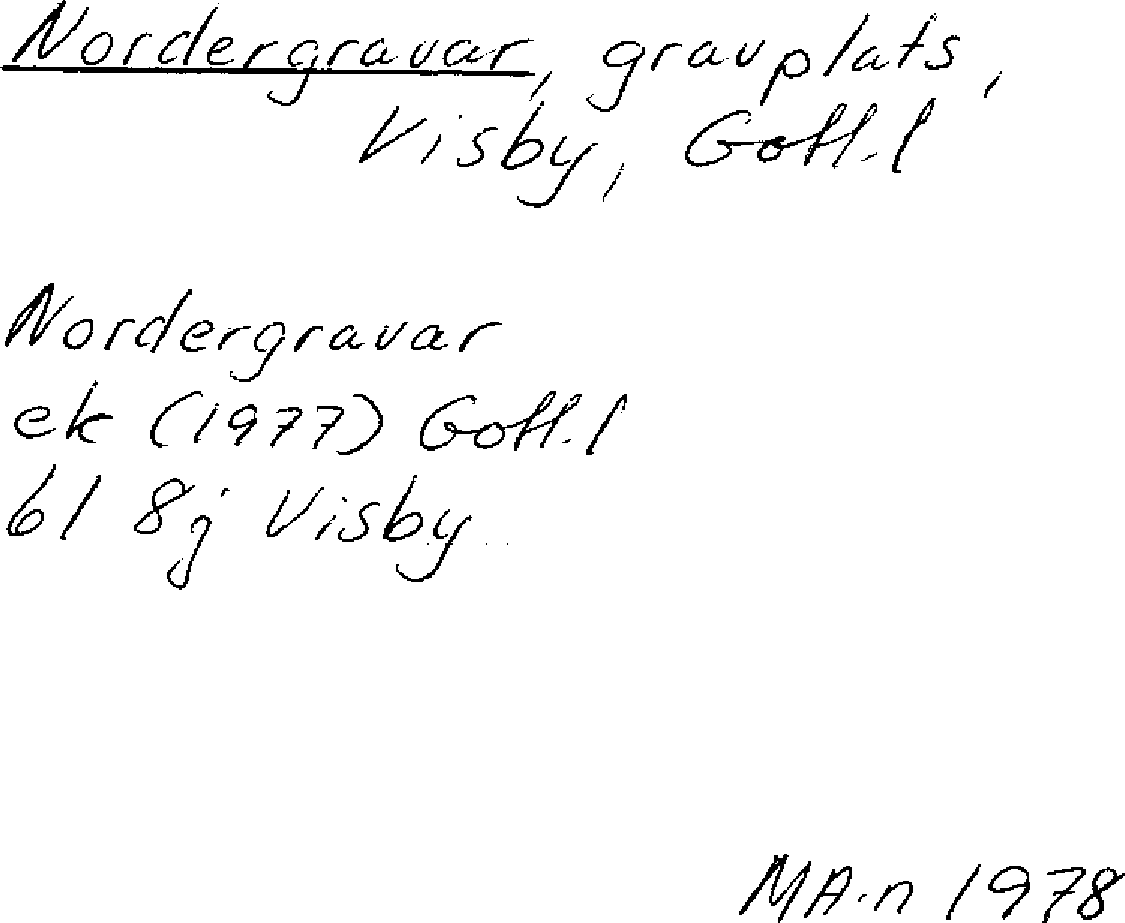 Nordergravar, gravplats,
Visby, Gotl.l
Nordergravar
ek (1977) Gotl.l
6I 8j Visby
MA.n 1978